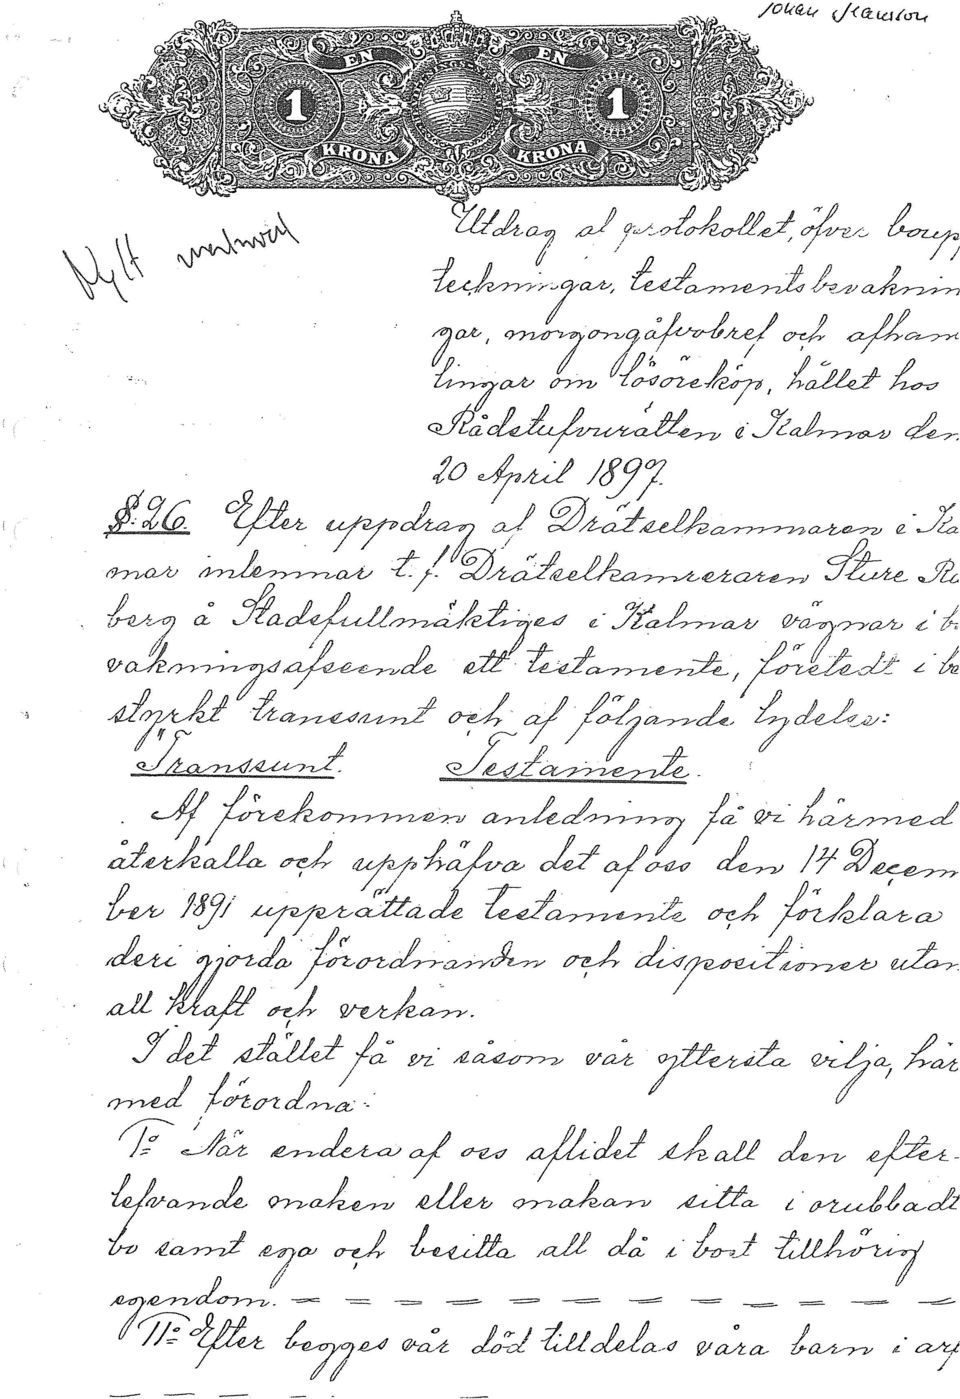 Johan Jeansson
EN EN
1 1
KRONA KRONA
Nytt
Utdrag af protokollet, öfver boupp
teckningar, testamentsbevaknin
gar, morgongåfvobref och afhan
lingar om lösöreköp, hållet hos
Rådstufvurätten i Kalmar den
20 April 1897.
§. 26. Efter uppdrag af Drätselkammaren i Ka
mar inlemnar t. f. Drätselkamreraren Sture Ru
berg å Stadsfullmäktiges i Kalmar vägnar i be
vakningsafseende ett testamente, företedt i be
styrkt transsumt och af följande lydelse:
"Transsumt. Testamente.
Af förekommen anledning få vi härmed
återkalla och upphäfva det af oss den 14 Decem
ber 1891 upprättade testamente och förklara
deri gjorda förordnanden och dispositioner utan
all kraft och verkan.
I det stället få vi såsom vår yttersta vilja, här
med förordna:
I:o När endera af oss aflidet skall den efter-
lefvande maken eller makan sitta i orubbadt
bo samt ega och besitta all då i boet tillhörig
egendom. — — — — — — — — — — — —
II:o Efter begges vår död tilldelas våra barn i arf